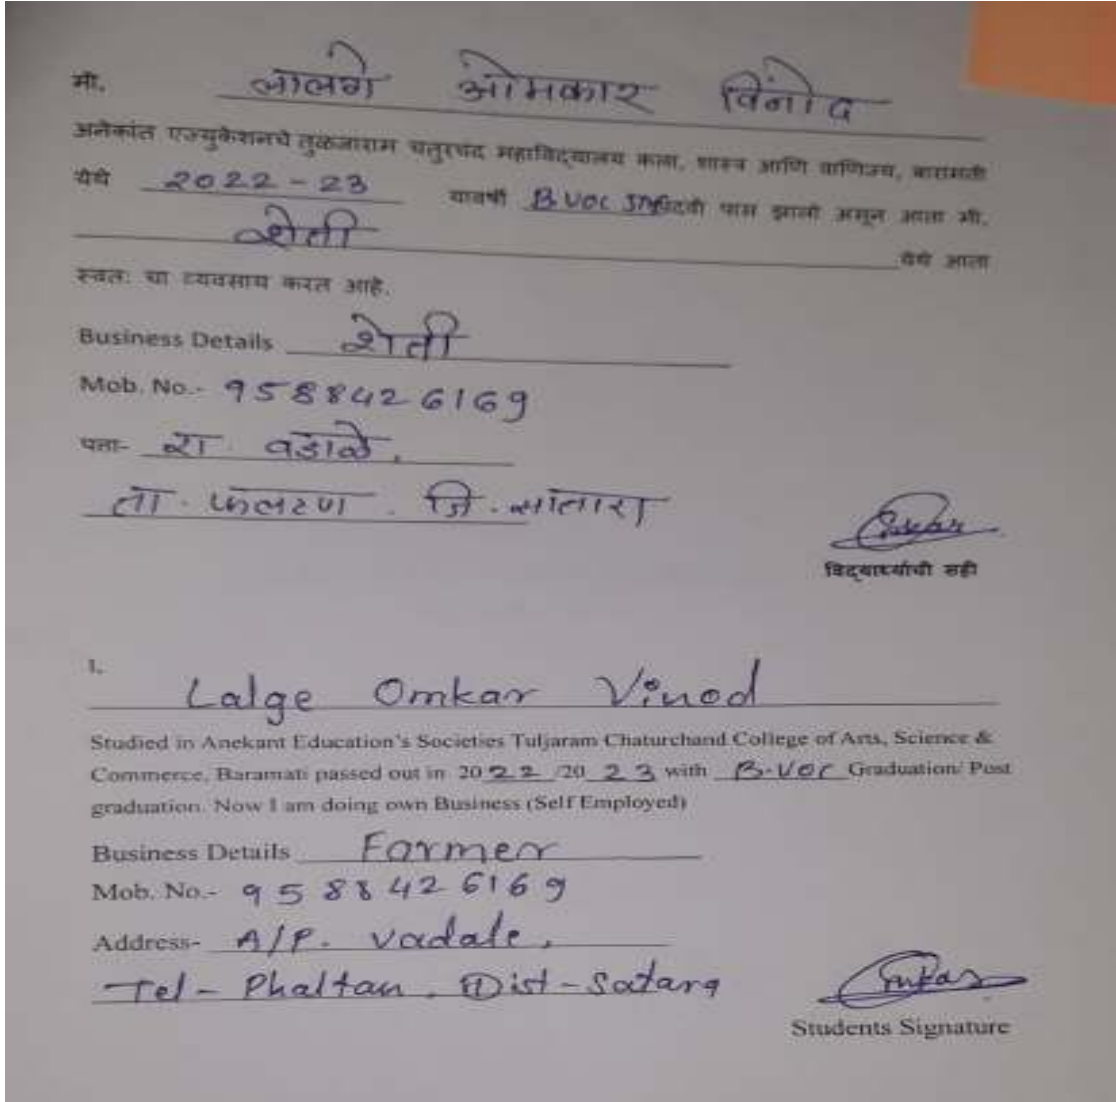 मी. लालगे ओमकार विनोद
अनेकांत एज्युकेशनचे तुळजाराम चतुरचंद महाविद्यालय कला, शास्त्र आणि वाणिज्य, बारामती
येथे 2022-23 यावर्षी B.voc पदवी पास झालो असून आता मी.
शेती येथे आता
स्वतः चा व्यवसाय करत आहे.
Business Details शेती
Mob. No.- 9588426169
पत्ता- रा. वडाळे,
ता. फलटण. जि. सातारा
Omkar
विद्यार्थ्याची सही
I.
Lalge Omkar Vinod
Studied in Anekant Education's Societies Tuljaram Chaturchand College of Arts, Science &
Commerce, Baramati passed out in 2022/2023 with B-VOC Graduation/ Post
graduation. Now I am doing own Business (Self Employed)
Business Details Farmer
Mob. No.- 9588426169
Address- A/P. Vadale,
Tel- Phaltan. Dist-Satara
Omkar
Students Signature